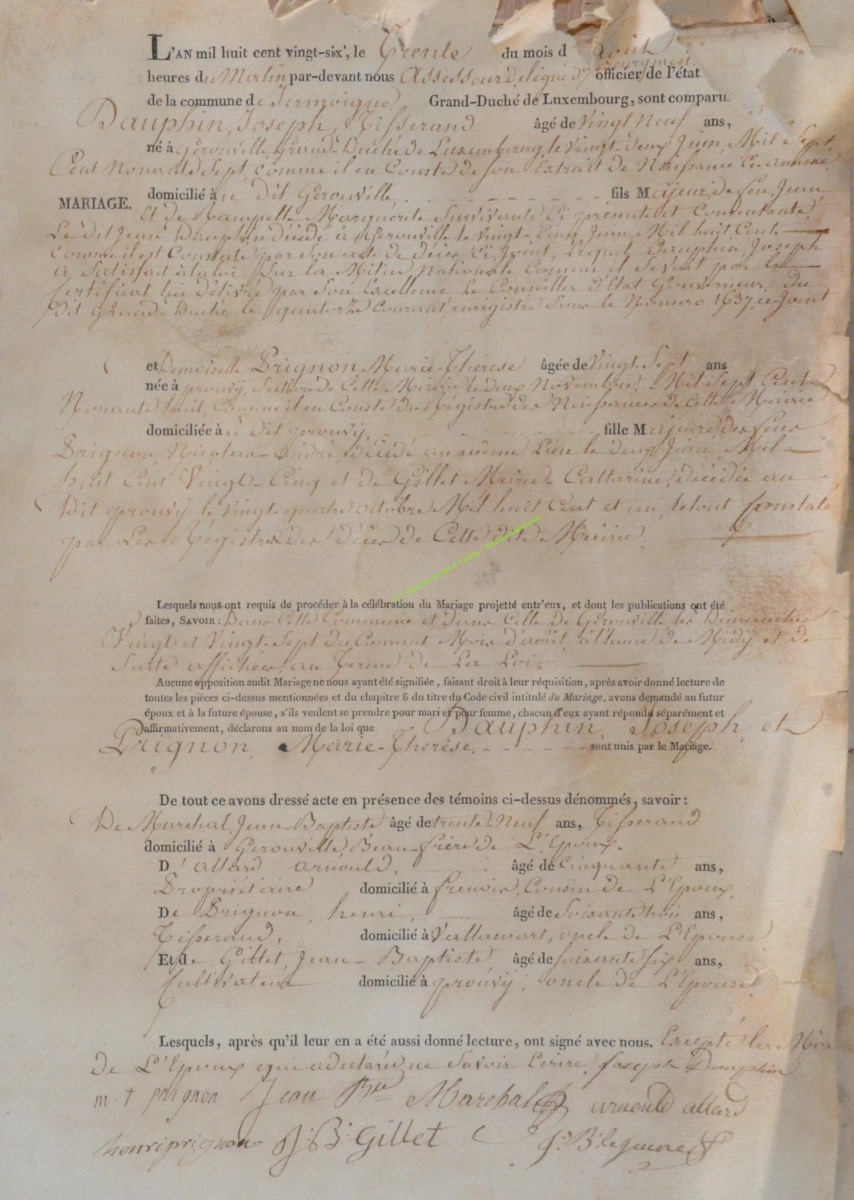 L'AN mil huit cent vingt-six, le Trente du mois d'Août
heures du Matin par-devant nous Assesseur délégué officier de l'état
de la commune de Jamoigne, Grand-Duché de Luxembourg, sont comparu
Dauphin, Joseph, Tisserand âgé de Vingt Neuf ans,
né à Gérouville, Grand-Duché de Luxembourg, le Vingt-deux Juin, Mil Sept
Cent Nonante Sept, comme il en Conste de son Extrait de Naissance Ci-annexé
domicilié à u dit Gérouville fils Majeur, de feu, Jean
MARIAGE.
Et de Marguerite Survivante Ci présente et Consentante,
Le dit Jean Dauphin décédé à Gérouville le vingt-Cinq Juin Mil huit Cent
Comme il est Constaté par Son acte de décès Ci-Joint, Lequel Dauphin Joseph
a Satisfait à la loi Sur la Milice Nationale Comme il par le
Certificat lui délivré par Son Excellence Le Conseiller d'Etat Gouverneur du
dit Grand-Duché le quatorze Courant enregistré Sous le Numero 1637 ci-Joint
et Demoiselle Prignon, Marie-Thérèse âgée de Vingt-Sept ans
née à prouvy, Section de Cette Mairie le deux Novembre, Mil Sept Cent
Nonante huit, Comme il en Conste du Régistre des Naissances de Cette Mairie
domiciliée à u dit prouvy fille Majeure, des feux
Prignon, Nicolas-André, décédé au même Lieu le deux Juin, Mil-
huit Cent Vingt-Cinq et de Gillet Marie-Catherine, décédée au
dit prouvy le vingt-quatre octobre Mil huit Cent et un, le tout Constaté
par Les Régistres des décès de Cette dite Mairie.
Lesquels nous ont requis de procéder à la célébration du Mariage projetté entr'eux, et dont les publications ont été
faites, SAVOIR : Dans Cette Commune et dans Celle de Gérouville les Dimanches
Vingt et Vingt-Sept du Courant Mois d'août à l'heure de Midy et de
Suite affichées au Terme de La Loi.
Aucune opposition audit Mariage ne nous ayant été signifiée, faisant droit à leur réquisition, après avoir donné lecture de
toutes les pièces ci-dessus mentionnées et du chapitre 6 du titre du Code civil intitulé du Mariage, avons demandé au futur
époux et à la future épouse, s'ils veulent se prendre pour mari et pour femme, chacun d'eux ayant répondu séparément et
affirmativement, déclarons au nom de la loi que Dauphin, Joseph, et
Prignon, Marie-Thérèse, sont unis par le Mariage.
De tout ce avons dressé acte en présence des témoins ci-dessus dénommés, savoir :
De Maréchal, Jean-Baptiste âgé de trente-Neuf ans, Tisserand
domicilié à Gérouville, Beau-frère de L'Epoux.
D'allard arnould, âgé de Cinquante ans,
Propriétaire domicilié à frenois, Cousin de L'Epoux,
De Prignon, henri, âgé de Soixante trois ans,
Tisserand, domicilié à Vallansart, oncle de L'Epouse
Et de Gillet, Jean-Baptiste âgé de soixante six ans,
Cultivateur domicilié à prouvy, oncle de L'Epouse.
Lesquels, après qu'il leur en a été aussi donné lecture, ont signé avec nous. Excepté la Mère
de L'Epoux qui a déclaré ne Savoir Ecrire. joseph Dauphin
m t prignon Jean Bte Marechal arnould allard
henri prignon J: B: Gillet